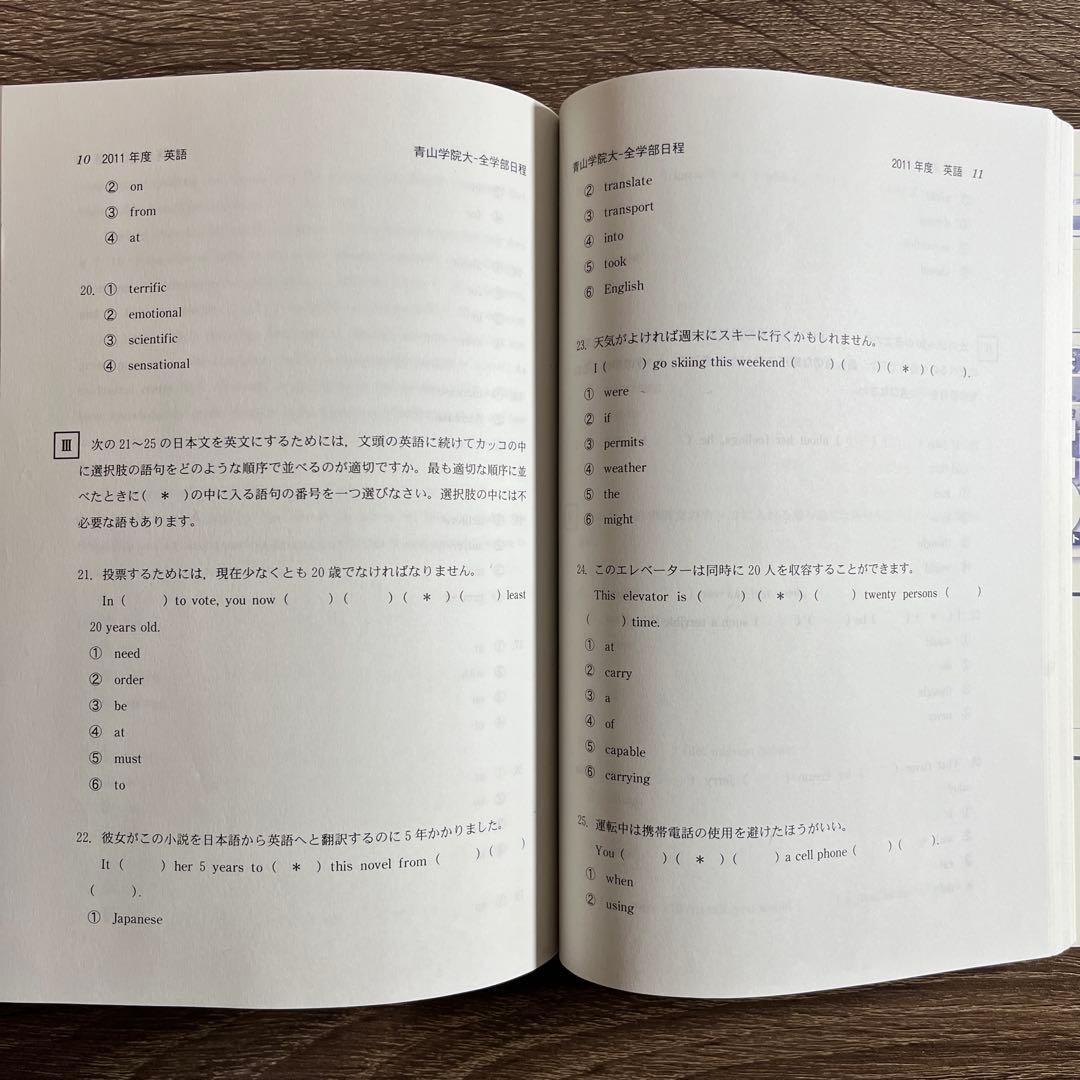 10 2011年度 英語 青山学院大-全学部日程
② on
③ from
④ at
20. ① terrific
② emotional
③ scientific
④ sensational
Ⅲ 次の21～25の日本文を英文にするためには，文頭の英語に続けてカッコの中
に選択肢の語句をどのような順序で並べるのが適切ですか。最も適切な順序に並
べたときに( ＊ )の中に入る語句の番号を一つ選びなさい。選択肢の中には不
必要な語もあります。
21. 投票するためには，現在少なくとも20歳でなければなりません。
In ( ) to vote, you now ( ) ( ) ( ＊ ) ( ) least
20 years old.
① need
② order
③ be
④ at
⑤ must
⑥ to
22. 彼女がこの小説を日本語から英語へと翻訳するのに5年かかりました。
It ( ) her 5 years to ( ＊ ) this novel from ( ) ( )
( ).
① Japanese
青山学院大-全学部日程 2011年度 英語 11
② translate
③ transport
④ into
⑤ took
⑥ English
23. 天気がよければ週末にスキーに行くかもしれません。
I ( ) go skiing this weekend ( ) ( ) ( ＊ ) ( ).
① were
② if
③ permits
④ weather
⑤ the
⑥ might
24. このエレベーターは同時に20人を収容することができます。
This elevator is ( ) ( ＊ ) ( ) twenty persons ( )
( ) time.
① at
② carry
③ a
④ of
⑤ capable
⑥ carrying
25. 運転中は携帯電話の使用を避けたほうがいい。
You ( ) ( ＊ ) ( ) a cell phone ( ) ( ).
① when
② using